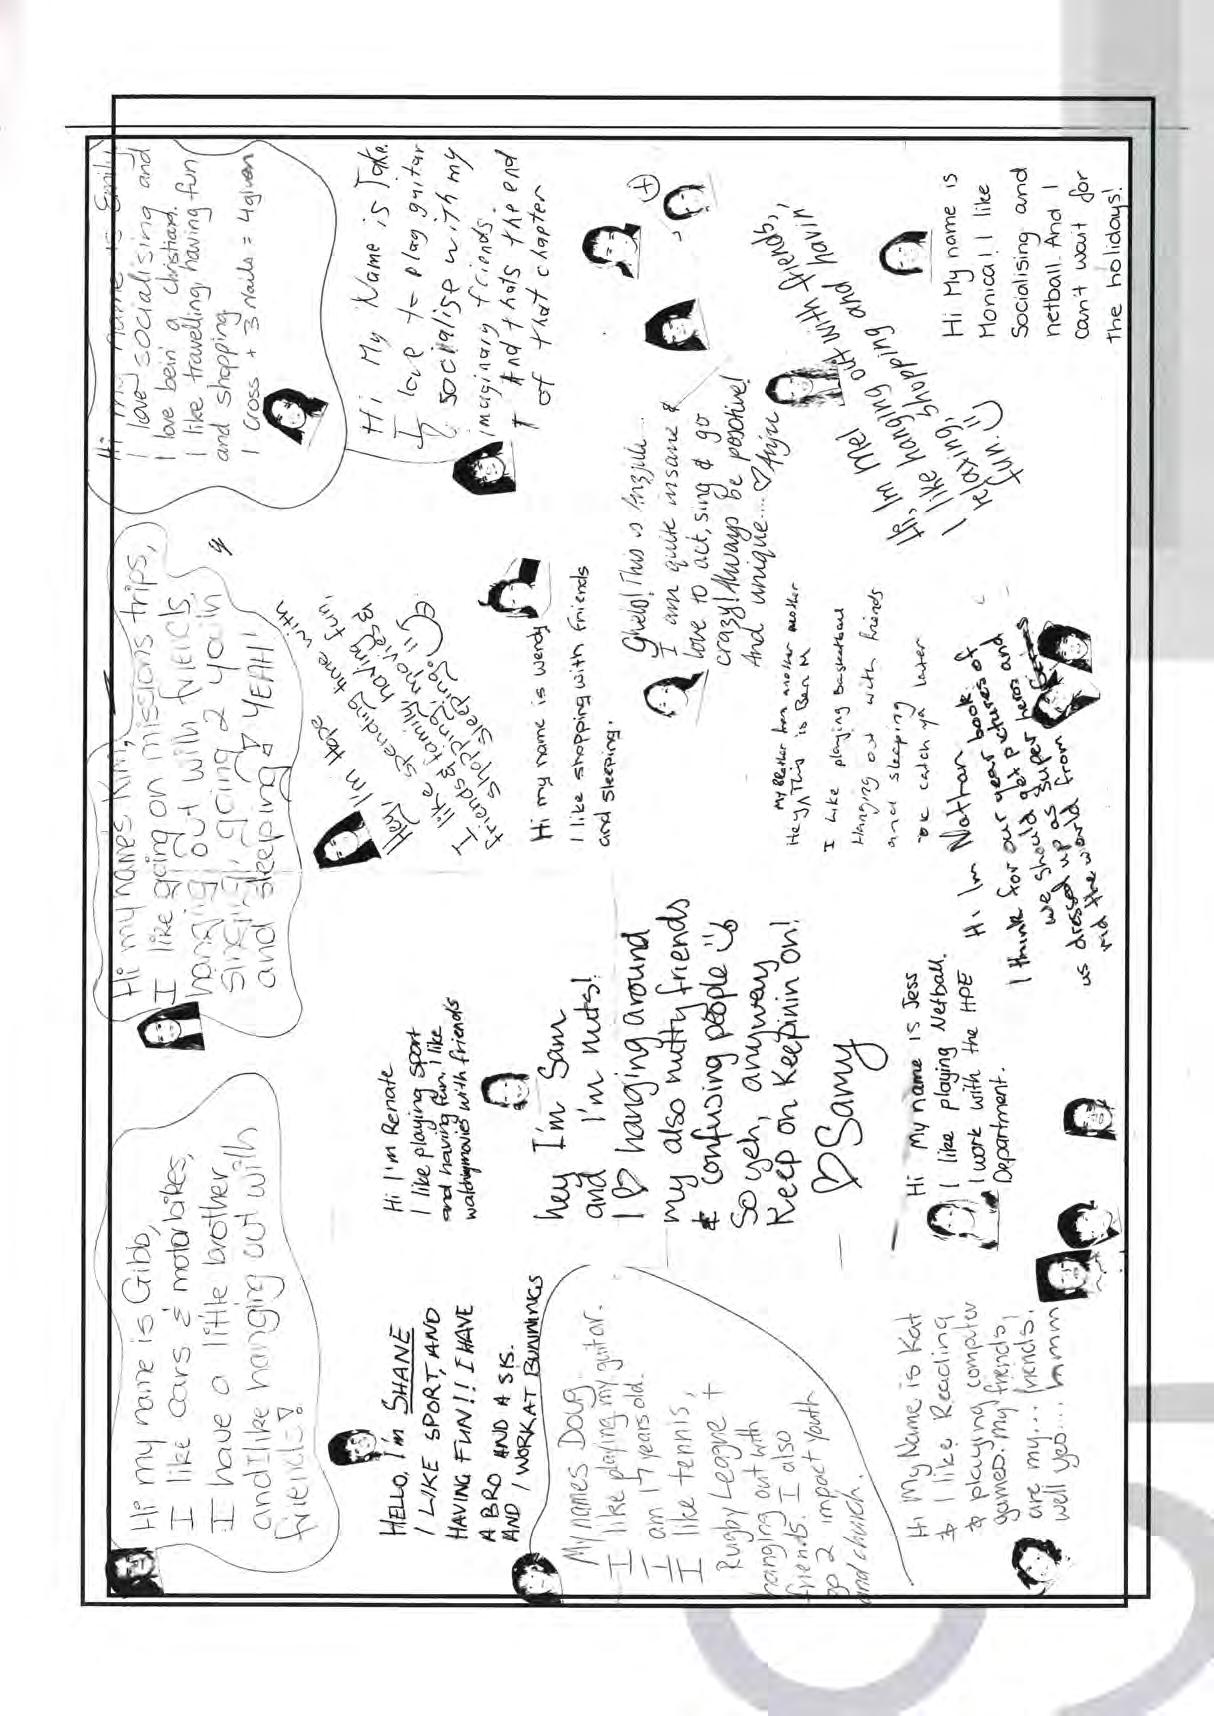 Hi my name is Gibb,
I like cars & motorbikes,
I have a little brother
and I like hanging out with
friends!
Hi my names Kim,
I like going on missions trips,
hanging out with friends,
singing, going 2 youth
and sleeping YEAH!
Hi my name is Emily
I love socialising and
I love bein' a christian.
I like travelling, having fun
and shopping
1 cross + 3 nails = 4given
HELLO, I'm SHANE
I LIKE SPORT, AND
HAVING FUN!! I HAVE
A BRO AND A SIS.
AND I WORK AT BUNNINGS
Hi I'm Renate
I like playing sport
and having fun, I like
watching movies with friends
Hey, I'm Hope
I like spending time with
friends & family, having fun,
shopping, movies &
sleeping.
Hi My Name is Jake.
I love to play guitar
& socialise with my
imaginary friends.
And thats the end
of that chapter
My names Doug.
I like playing my guitar.
I am 17 years old.
I like tennis,
Rugby League +
hanging out with
friends. I also
go 2 impact youth
and church.
hey I'm Sam
and I'm nuts!
I ♡ hanging around
my also nutty friends
& confusing people
So yeh, anyway
Keep on Keepinin on!
♡ Samy
Hi my name is Wendy
I like shopping with friends
and sleeping.
This is Anjuli...
I am quite insane &
love to act, sing & go
crazy! Always be positive!
And unique.... ♡ Anju
My Brother from another mother
Hey This is Ben M
I Like playing basketball
Hanging out with friends
and sleeping
ok catch ya later
Hi, Im Mel
I like hanging out with friends,
I like shopping and havin'
relaxing,
fun.
Hi My Name is Kat
I like Reading
& playing computer
games. My friends,
are my... friends!
well yeo... hmmm
Hi My name is Jess
I like playing Netball.
I work with the HPE
Department.
Hi Im Nathan
I think for our year book
we should get pictures of
us dressed up as super heros and
rid the world from
Hi My name is
Monica! I like
Socialising and
netball. And I
can't wait for
the holidays!